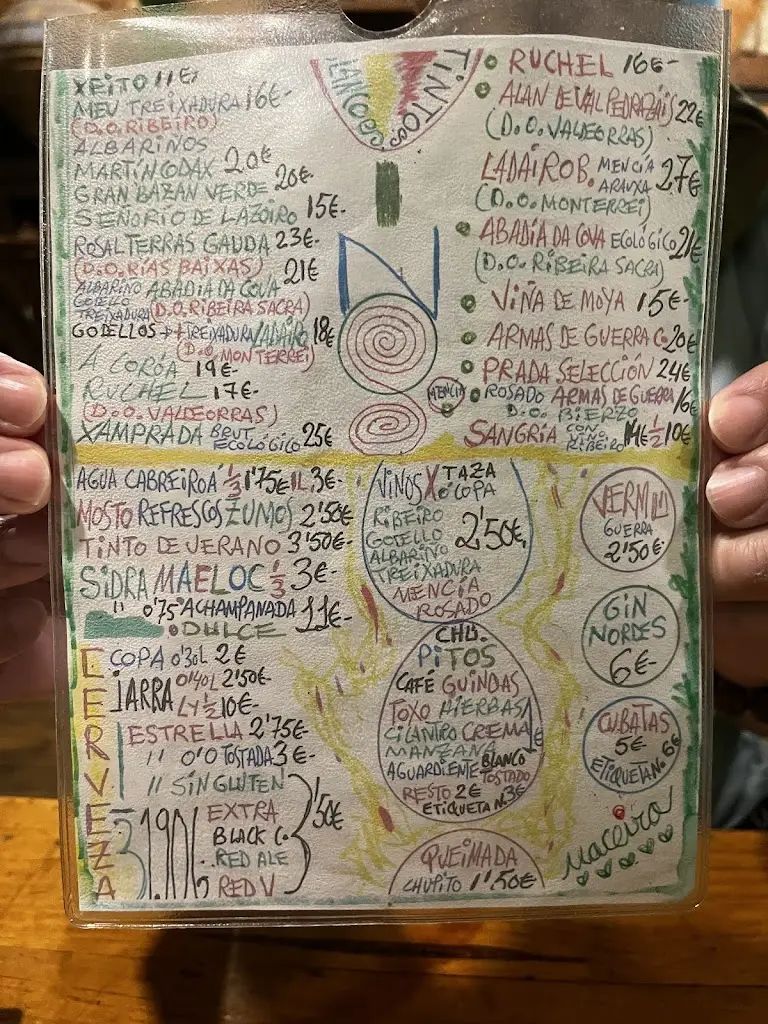 BLANCOS
TINTOS
XEITO 11€
MEU TREIXADURA 16€-
(D.O.RIBEIRO)
ALBARIÑOS
MARTÍN CODAX 20€
GRAN BAZAN VERDE 20€-
SEÑORIO DE LAZOIRO 15€-
ROSAL TERRAS GAUDA 23€-
(D.O.RÍAS BAIXAS)
ALBARIÑO ABADIA DA COVA 21€
GODELLO
TREIXADURA (D.O.RIBEIRA SACRA)
GODELLOS ++TREIXADURA/LADAIRO 18€
(D.O. MONTERREI)
A COROA 19€-
RUCHEL 17€-
(D.O.VALDEORRAS)
XAMPRADA BRUT ECOLÓGICO 25€
RUCHEL 16€-
ALAN DE VAL PEDRAZAIS 22€
(D.O.VALDEORRAS)
LADAIRO B. MENCÍA ARAUXA 27€
(D.O.MONTERREI)
ABADÍA DA COVA ECOLÓGICO 21€
(D.O.RIBEIRA SACRA)
VIÑA DE MOYA 15€-
ARMAS DE GUERRA C. 20€
PRADA SELECCIÓN 24€
MENCÍA
ROSADO ARMAS DE GUERRA 16€
D.O. BIERZO
SANGRÍA CON VINO RIBEIRO 1L 14€ ½ 10€
AGUA CABREIROÁ ⅓ 1'75€ 1L 3€-
MOSTO REFRESCOS ZUMOS 2'50€
TINTO DE VERANO 3'50€-
SIDRA MAELOC ⅓ 3€-
" 0'75 ACHAMPANADA 11€-
DULCE
CERVEZA
COPA 0'30L 2€
JARRA 0'40L 2'50€-
1L y ½ 10€-
ESTRELLA 2'75€
" 0'0 TOSTADA 3€-
" SIN GLUTEN
1906
EXTRA
BLACK C.
RED ALE
RED V
3'50€
VINOS X TAZA
O COPA
RIBEIRO
GODELLO
ALBARIÑO
TREIXADURA
MENCÍA
ROSADO
2'50€
CHU.
PITOS
CAFÉ GUINDAS
TOXO HIERBAS
CILANTRO CREMA
MANZANA
1€
AGUARDIENTE BLANCO TOSTADO
RESTO 2€
ETIQUETA N. 3€
QUEIMADA
CHUPITO 1'50€
VERMÚ
GUERRA
2'50€-
GIN
NORDES
6€-
CUBATAS
5€-
ETIQUETA N. 6€
Maceira